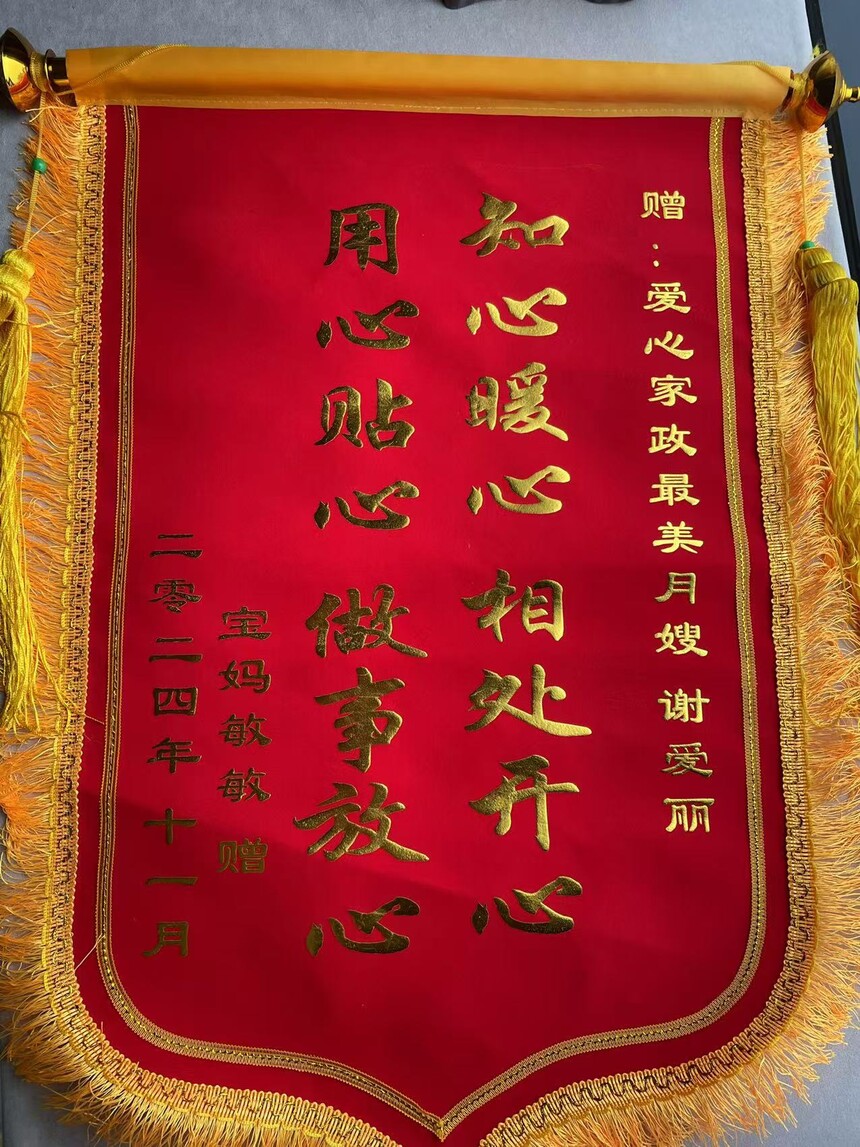 赠：爱心家政最美月嫂 谢爱丽
知心暖心 相处开心
用心贴心 做事放心
宝妈敏敏 赠
二零二四年十一月